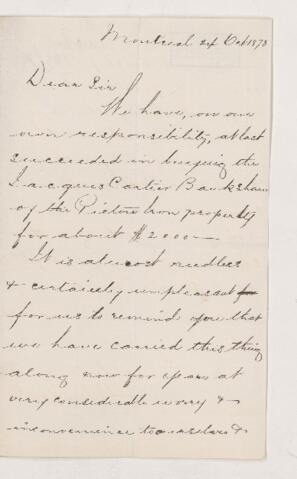 Montreal 24 Oct 1873
Dear Sir
We have, on our
own responsibility, at last
succeeded in buying the
Jacques Cartier Bank share
of the Pictou Iron property
for about $2000—
It is almost needless
& certainly unpleasant for
for us to remind you that
we have carried this thing
along now for years at
very considerable worry &
inconvenience to ourselves &